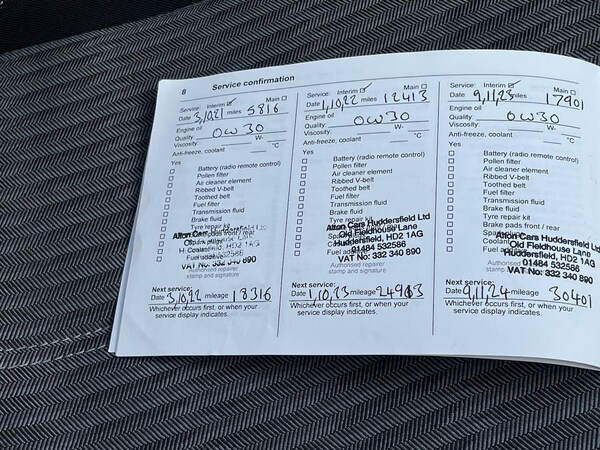 8 Service confirmation
Service: Interim ☑ Main ☐
Date 3,10,21 miles 5816
Engine oil
Quality: 0W30
Viscosity: W-
Anti-freeze, coolant °C
Yes
Battery (radio remote control)
Pollen filter
Air cleaner element
Ribbed V-belt
Toothed belt
Fuel filter
Transmission fluid
Brake fluid
Tyre repair kit
Authorised repairer
stamp and signature
Next service:
Date 3,10,22 mileage 18316
Whichever occurs first, or when your
service display indicates.
Service: Interim ☑ Main ☐
Date 1,10,22 miles 12413
Engine oil
Quality: 0W30
Viscosity: W-
Anti-freeze, coolant °C
Yes
Battery (radio remote control)
Pollen filter
Air cleaner element
Ribbed V-belt
Toothed belt
Fuel filter
Transmission fluid
Brake fluid
Tyre repair kit
Alton Cars Huddersfield Ltd
Old Fieldhouse Lane
Huddersfield, HD2 1AG
01484 532586
VAT No: 332 340 890
Authorised repairer
stamp and signature
Next service:
Date 1,10,23 mileage 24913
Whichever occurs first, or when your
service display indicates.
Service: Interim ☑ Main ☐
Date 9,11,23 miles 17901
Engine oil
Quality: 0W30
Viscosity: W-
Anti-freeze, coolant °C
Yes
Battery (radio remote control)
Pollen filter
Air cleaner element
Ribbed V-belt
Toothed belt
Fuel filter
Transmission fluid
Brake fluid
Tyre repair kit
Brake pads front / rear
Alton Cars Huddersfield Ltd
Old Fieldhouse Lane
Huddersfield, HD2 1AG
01484 532586
VAT No: 332 340 890
Next service:
Date 9,11,24 mileage 30401
Whichever occurs first, or when your
service display indicates.